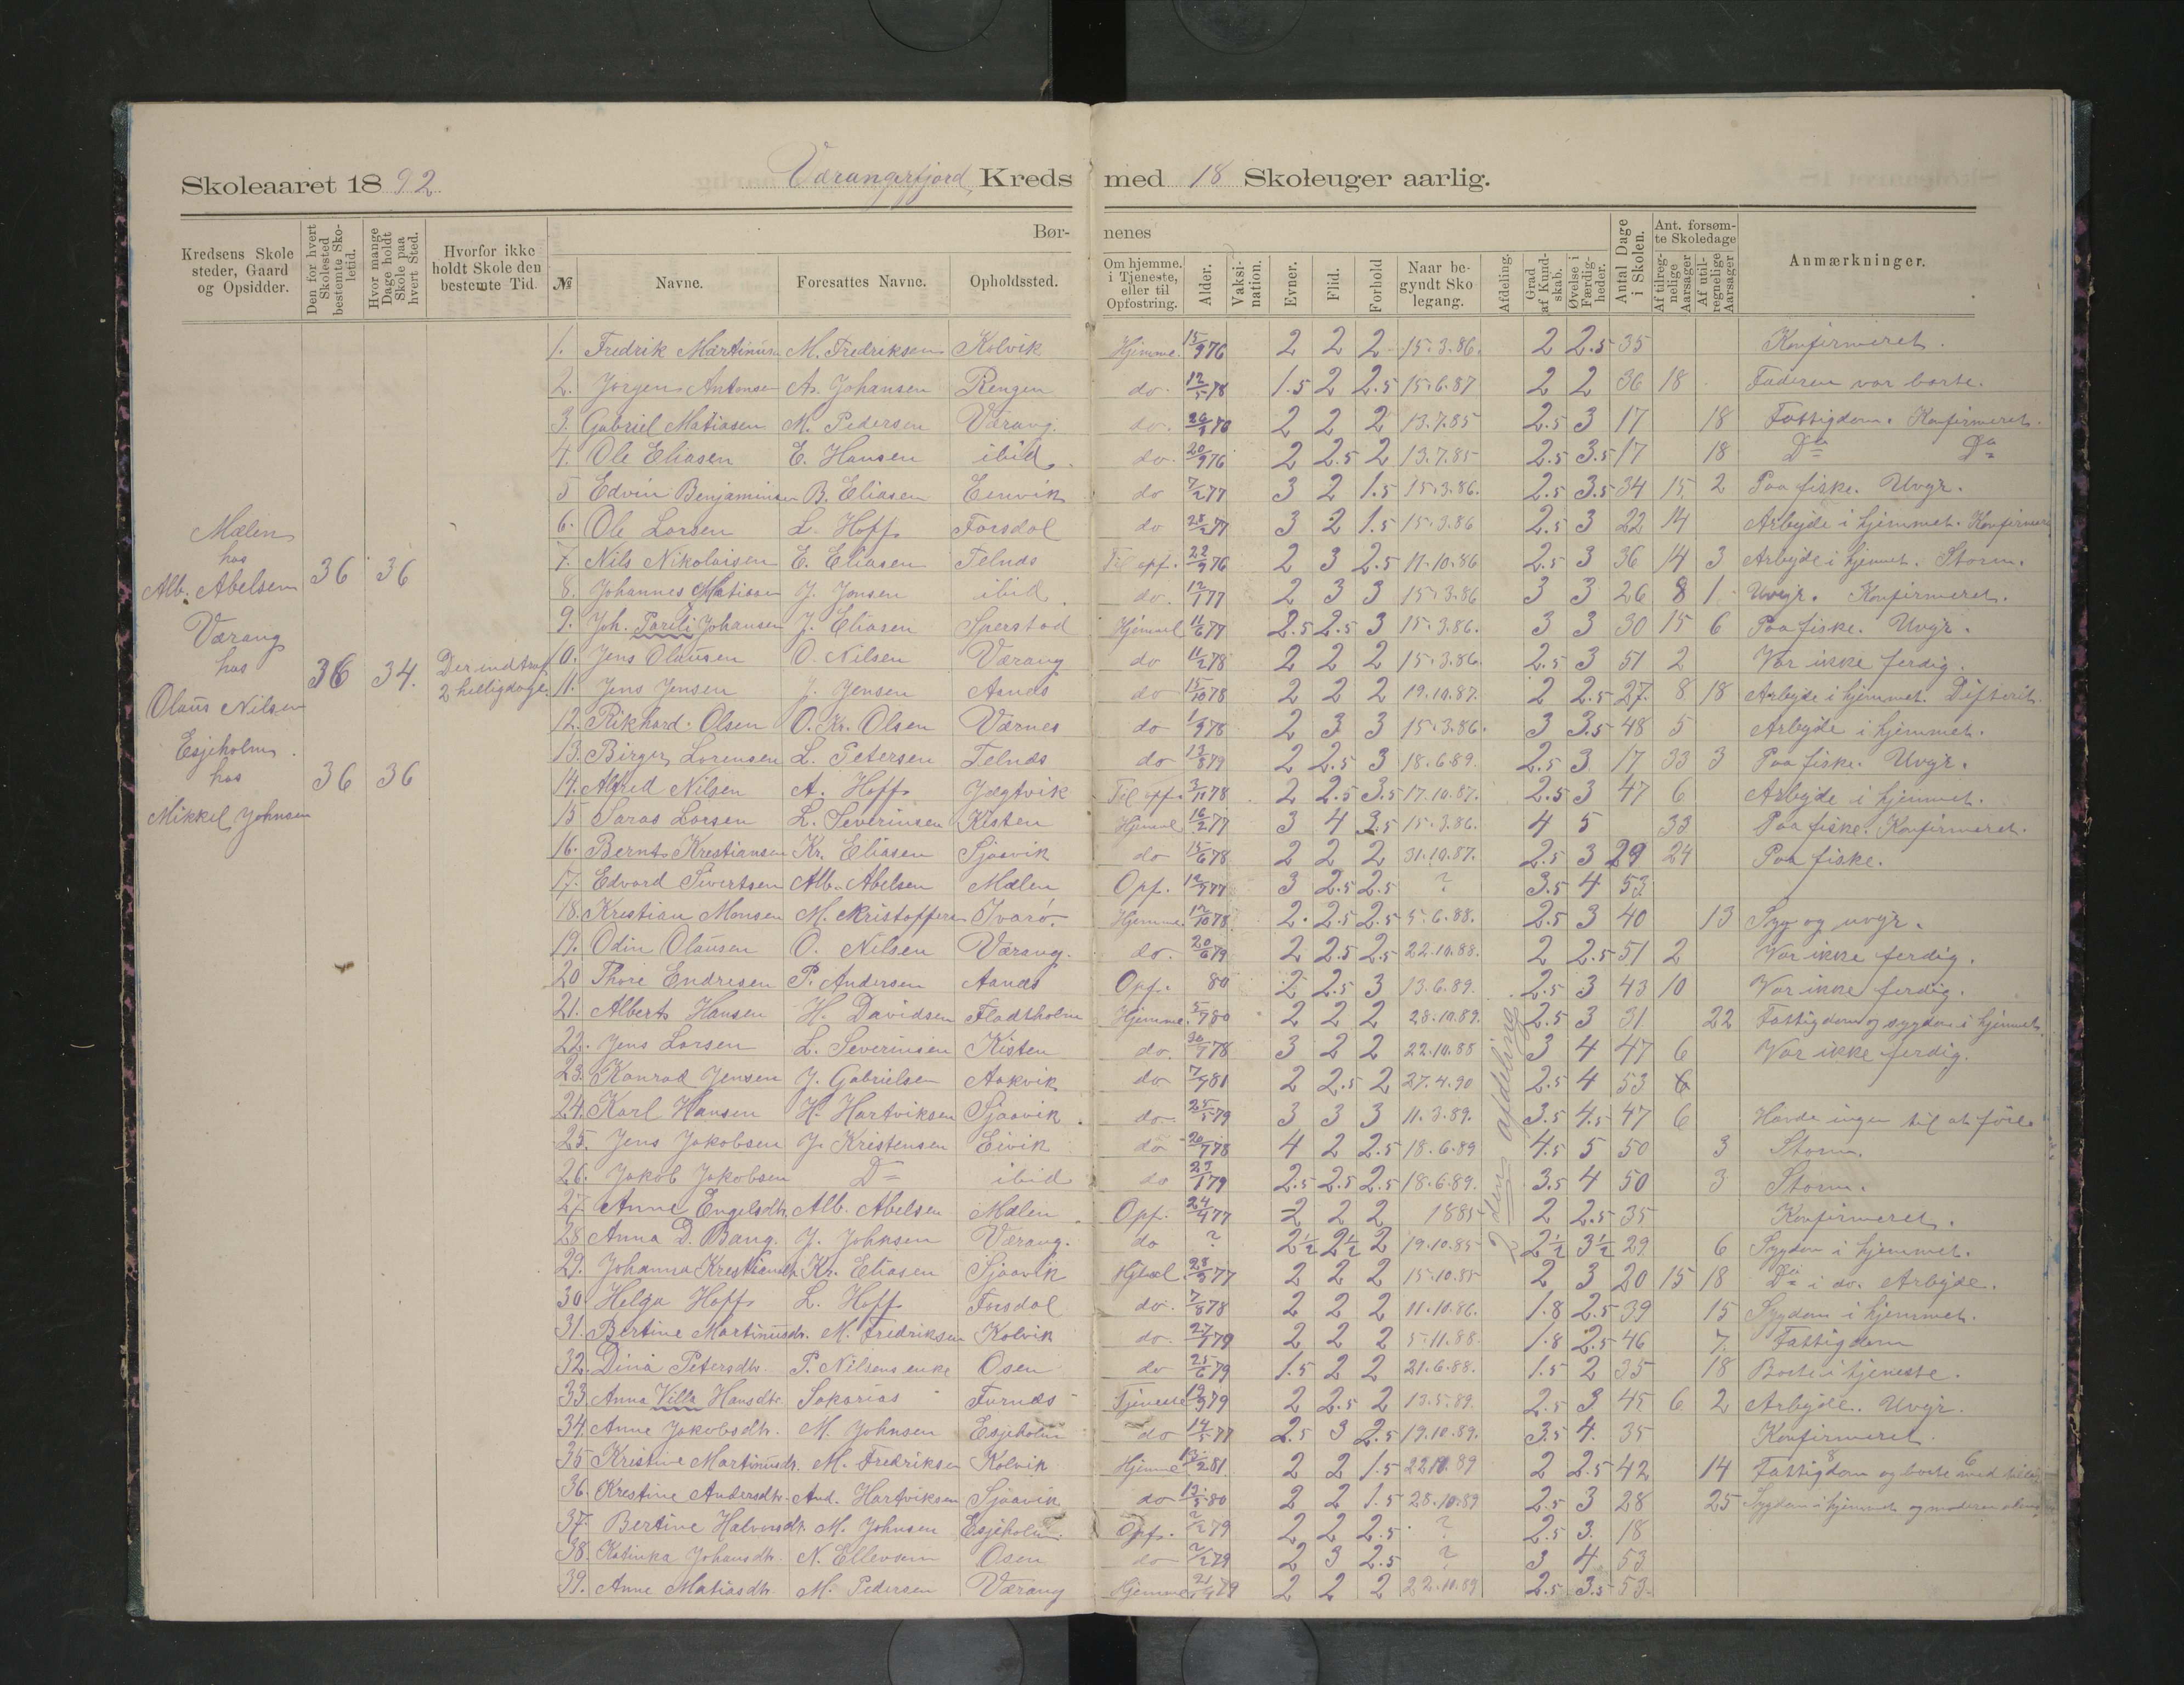 Skoleaaret 1892 Værangfjord Kreds med 18 Skoleuger aarlig.
Kredsens Skolesteder, Gaard og Opsidder. | Den for hvert Skolested bestemte Skoletid. | Hvor mange Dage holdt Skole paa hvert Sted. | Hvorfor ikke holdt Skole den bestemte Tid | Børnenes
№ | Navne. | Foresattes Navne. | Opholdssted. | Om hjemme. i Tjeneste, eller til Opfostring. | Alder. | Vaksination. | Evner. | Flid. | Forhold | Naar begyndt Skolegang. | Afdeling. | Grad af Kundskab. | Øvelse i Færdigheder. | Antal Dage i Skolen. | Ant. forsømte Skoledage | Af tilregnelige Aarsager | Af utilregnelige Aarsager | Anmærkninger.
Mælen
hos
Alb. Abelsen 36 36
Værang
hos 36 34. Der indtraf
2 helligdage
Olaus Nilsen
Esjeholm.
hos 36 36
Mikkel Johnsen
2den afdeling
1. Fredrik Martinusn M. Fredriksen Kolvik Hjemme. 15/9 76 2 2 2 15.3.86. 2 2.5 35 Konfirmeret.
2. Jørgen Antonsen A. Johansen Rengen do. 12/5 78 1.5 2 2.5 15.6.87 2 2 36 18 Faderen var borte.
3. Gabriel Matiasen M. Pedersen Værang. do. 26/1 76 2 2 2 13.7.85 2.5 3 17 18 Fattigdom. Konfirmeret.
4. Ole Eliasen E. Hansen ibid. do. 20/9 76 2 2.5 2 13.7.85 2.5 3.5 17 18 Do Do
5 Edvin Benjaminsen B. Eliasen Eenvik do 7/2 77 3 2 1.5 15.3.86. 2.5 3.5 34 15 2 Paa fiske. Uvejr.
6. Ole Larsen L. Hoff Forsdal do 28/2 77 3 2 1.5 15.3.86 2.5 3 22 14 Arbejde i hjemmet. Konfirmeret
7. Nils Nikolaisen E. Eliasen Telnæs Til opf. 22/9 76 2 3 2.5 11.10.86 2.5 3 36 14 3 Arbejde i hjemmet. Storm.
8. Johannes Matiasen J. Jensen ibid. do. 12/1 77 2 3 3 15.3.86 3 3 26 8 1 Uvejr. Konfirmeret.
9. Joh. Parili Johansen J. Eliasen Sperstad Hjemmet 11/6 77 2.5 2.5 3 15.3.86. 3 3 30 15 6 Paa fiske. Uvejr.
10. Jens Olausen O. Nilsen Værang do 11/2 78 2 2 2 15.3.86. 2.5 3 51 2 Var ikke ferdig.
11. Jens Jensen J. Jensen Aanæs do 15/10 78 2 2 2 19.10.87. 2 2.5 27. 8 18 Arbejde i hjemmet. Difterit.
12. Rikhard Olsen O. Kr. Olsen Værnes do 1/9 78 2 3 3 15.3.86. 3 3.5 48 5 Arbejde i hjemmet.
13. Birger Lorensen L. Petersen Telnæs do 13/8 79 2 2.5 3 18.6.89. 2.5 3 17 33 3 Paa fiske. Uvejr.
14. Alfred Nilsen A. Hoff Jægtvik Til opf. 3/11 78 2 2.5 3.5 17.10.87. 2.5 3 47 6 Arbejde i hjemmet.
15 Saras Larsen L. Severinsen Kisten Hjemmet 16/2 77 3 4 3.5 15.3.86. 4 5 33 Paa fiske. Konfirmeret.
16. Bernt Krestiansen Kr. Eliasen Sjaavik do 15/6 78 2 2 2 31.10.87. 2.5 3 29 24 Paa fiske.
17. Edvard Sivertsen Alb. Abelsen Mælen Opf. 12/9 77 3 2.5 2.5 ? 3.5 4 53.
18. Krestian Monsen M. Kristoffers Ivarø. Hjemme. 12/10 78 2. 2.5 2.5 5.6.88. 2.5 3 40 13 Syg og uvejr.
19. Odin Olausen O. Nilsen Værang. do. 20/6 79 2 2.5 2.5 22.10.88. 2 2.5 51 2 Var ikke ferdig.
20 Thore Endresen P. Andersen Aanæs Opf. 80 2 2.5 3 13.6.89. 2.5 3 43 10 Var ikke ferdig.
21. Albert Hansen H. Davidsen Fladtholm Hjemme. 5/7 80 2 2 2 28.10.89. 2.5 3 31 22 Fattigdom og sygdom i hjemmet.
22. Jens Larsen L. Severinsen Kisten do. 30/1 78 3 2 2 22.10.88 3 4 47 6 Var ikke ferdig.
23. Konrad Jensen J. Gabrielsen Aakvik do 7/9 81 2 2.5 2 27.4.90 2.5 4 53 6
24. Karl Hansen H. Hartviksen Sjaavik do. 25/5 79 3 3 3 11.3.89. 3.5 4.5 47 6 Havde ingen til at före
25. Jens Jakobsen J. Kristensen Eivik do 20/7 78 4 2 2.5 18.6.89 4.5 5 50 3 Storm.
26. Jakob Jakobsen Do ibid do 23/1 79 2.5 2.5 2.5 18.6.89. 3.5 4 50 3 Storm.
27. Anne Engelsdtr. Alb. Abelsen Mælen Opf. 24/4 77 2 2 2 1885 2 2.5 35 Konfirmeret.
28. Anna D. Bang. J. Johnsen Værang. do ? 2½ 2½ 2 19.10.85 2½ 3½ 29 6 Sygdom i hjemmet.
29. Johanna Krestiansdtr. Kr. Eliasen Sjaavik 28/9 77 2 2 2 15.10.85 2 3 20 15 18 Do i do. Arbejde.
30. Helga Hoff L. Hoff Forsdal do. 7/8 78 2 2 2 11.10.86. 1.8 2.5 39 15 Sygdom i hjemmet.
31. Bertine Martinusdtr. M. Fredriksen Kolvik do. 27/1 79 2 2 2 5.11.88. 1.8 2.5 46 7. Fattigdom
32. Dina Petersdtr. P. Nilsens enke Osen do 25/6 79 1.5 2 2 21.6.88. 1.5 2 35 18 Borte i tjeneste.
33. Anna Villa Hansdtr. Sakarias Furnæs Tjeneste 12/3 79 2 2.5 2 13.5.89. 2.5 3 45 6 2 Arbejde. Uvejr.
34. Anne Jakobsdtr. M. Johnsen Esjeholm do 14/5 77 2.5 3 2.5 19.10.89. 3.5 4. 35 Konfirmeret
35 Kristine Martinusdtr. M. Fredriksen Kolvik Hjemme 13/2 81 2 2 1.5 22.10.89 2 2.5 42 14 Fattigdom 8 og borte 6
36. Krestine Andersdtr. And. Hartviksen Sjaavik do 13/5 80 2 2 1.5 28.10.89 2.5 3 28 25 Sygdom i hjemmet og moderen alene
37. Bertine Halvorsdtr. M. Johnsen Esjeholm. Opf. ?/2 79 2 2 2.5 ? 2.5 3. 18
38. Katinka Johansdtr. N. Ellevsen Osen do ?/2 79 2 3 2.5 ? 3 4 53
39. Anne Matiasdtr. M. Pedersen Værang Hjemme 21/11 79 2 2 2 22.10.89 2.5 3.5 53.